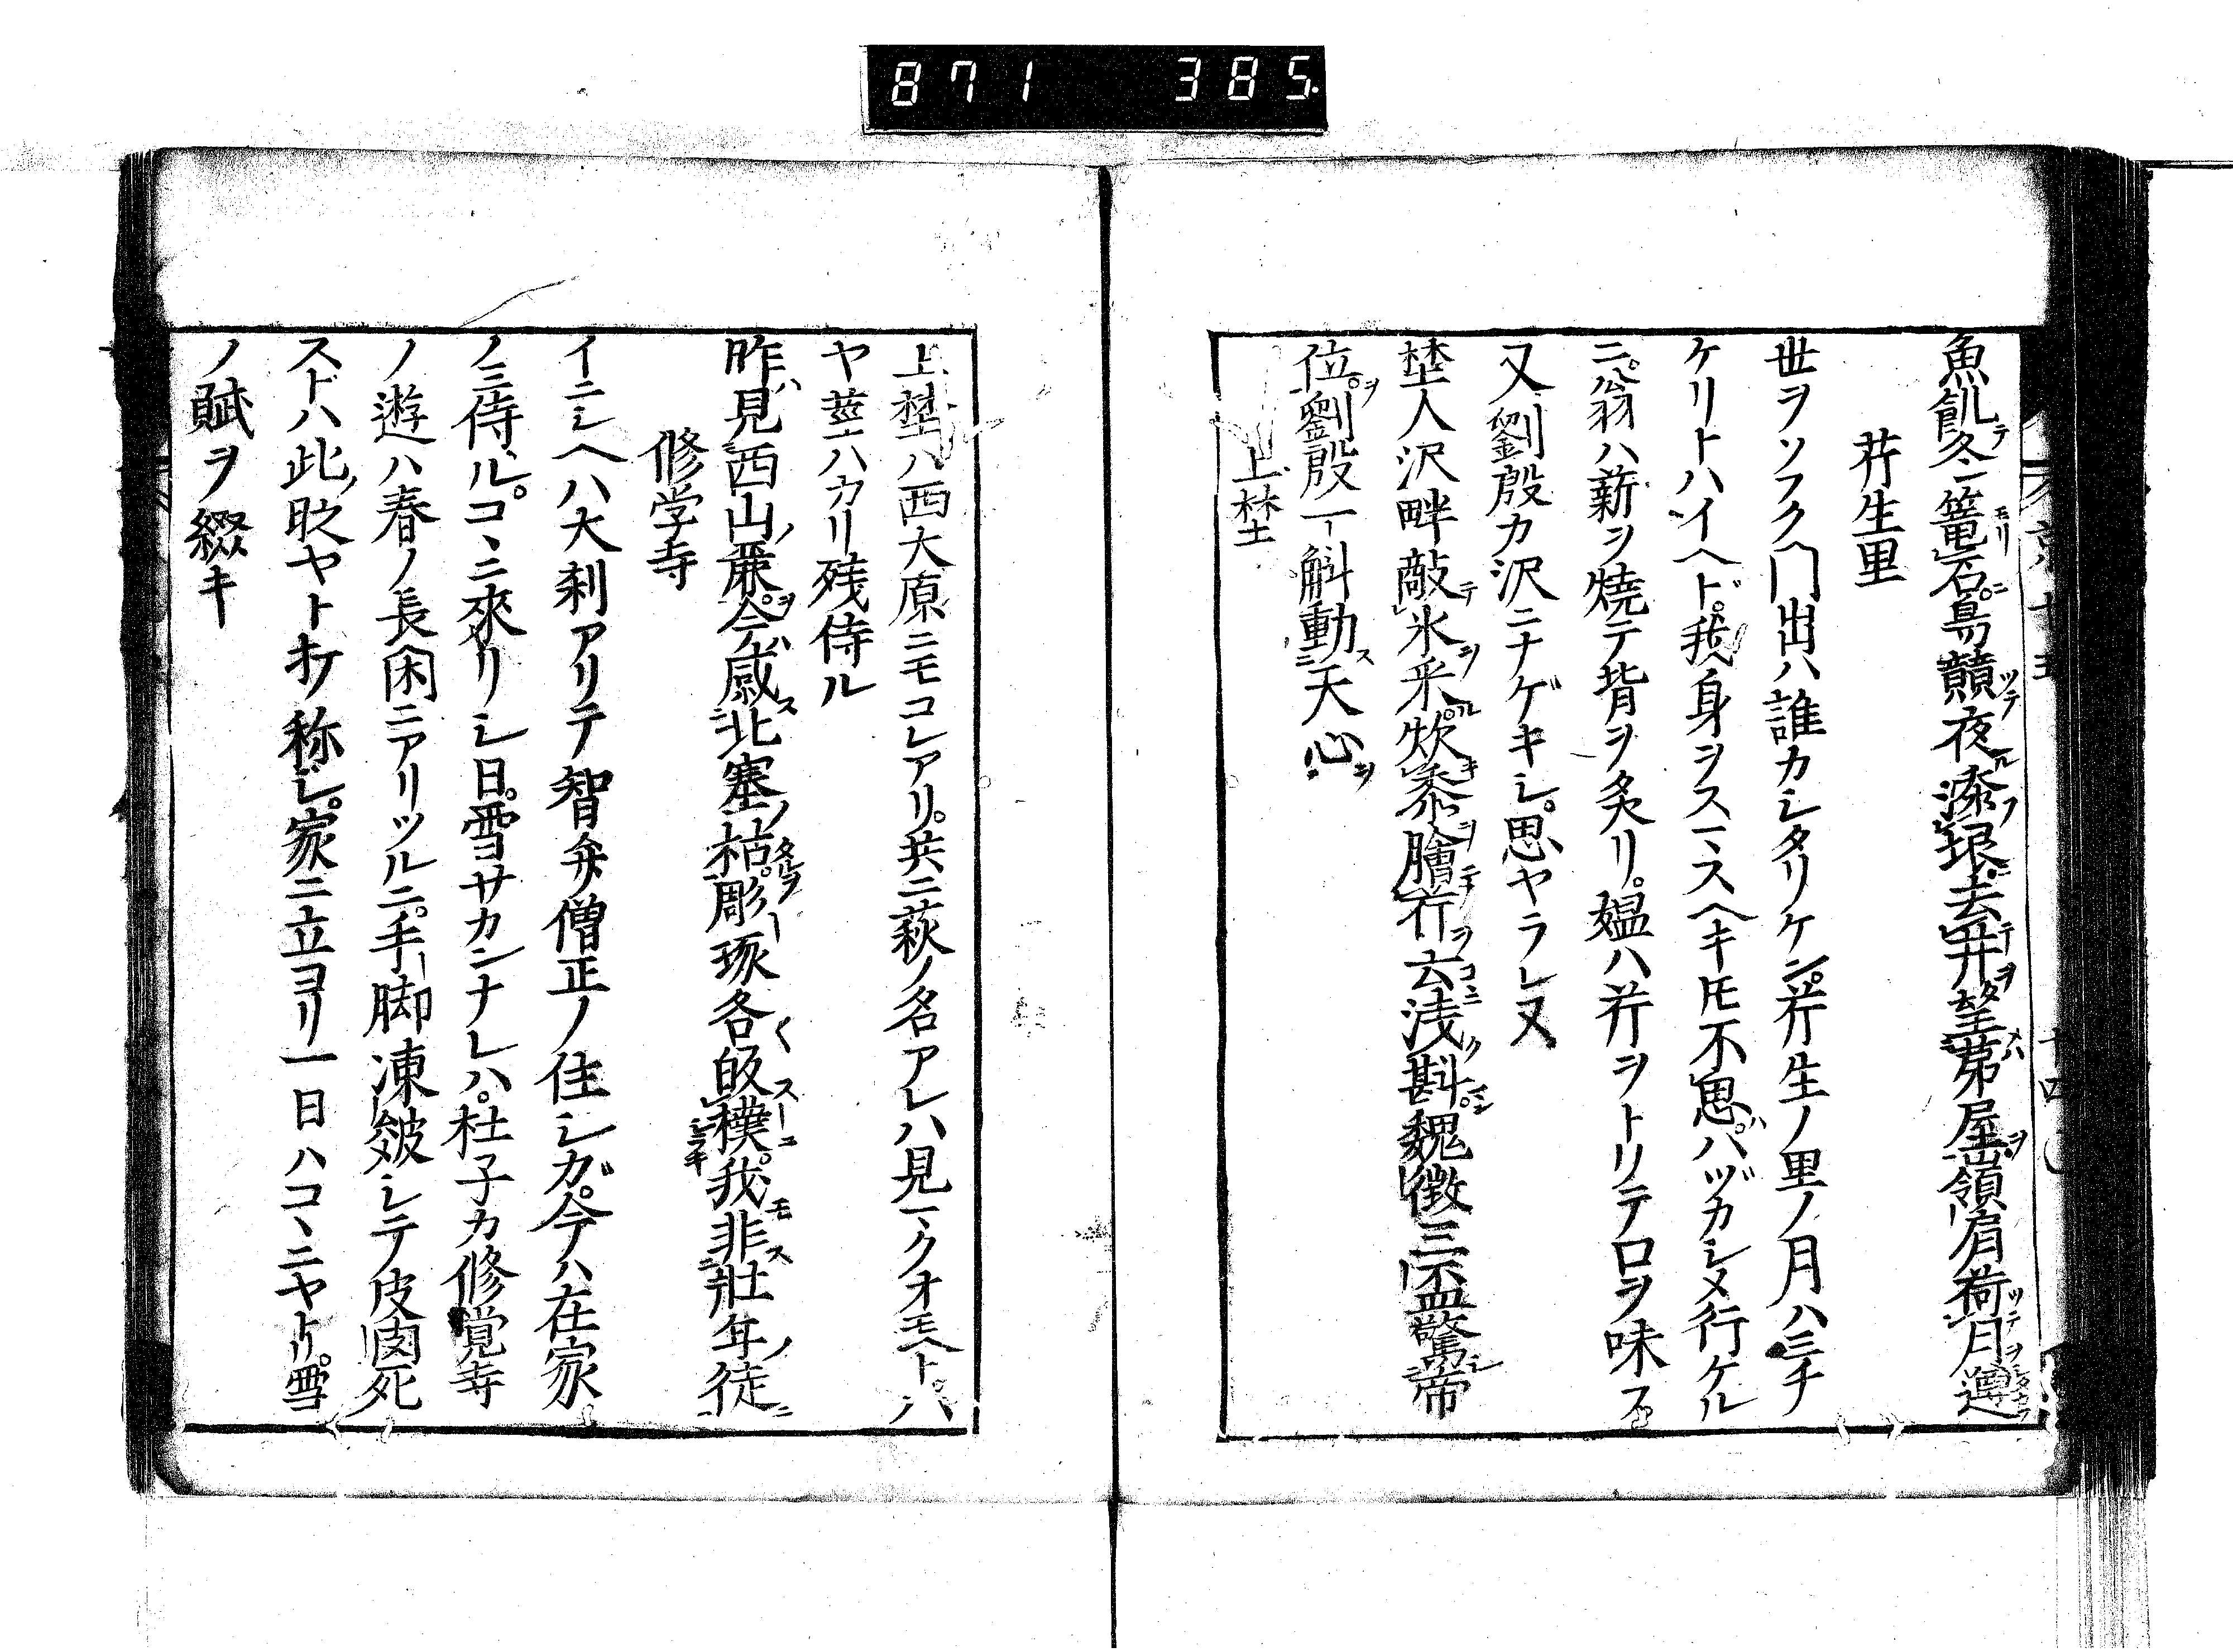 871 385.
魚飢冬籠石島贑夜漆琅去井埜苐屋嶺肩荷月邅
芹生里
世ヲソフク門出ハ誰カシタリケン芹生ノ里ノ月ハミテ
ケリトハイヘド我身ヲスヽスヘキ𪜈不思ハヅカシメ行ケル
ニ翁ハ薪ヲ焼テ背ヲ炙リ媼ハ芹ヲトリテ口ヲ味フ
又劉殷カ沢ニナゲキシ思ヤラレ又
埜人沢畔敲氷釆炊黍膾芹云淺斟魏徴三盃驚帝
位劉殷一斛動天心
上埜
上埜ハ西大原ニモコレアリ共ニ萩ノ名アレハ見マクオモヘトハ
ヤ莖ハカリ残侍ル
昨見西山蕨今感北塞枯彫琢各皈穙我非壮年徒
修学寺
イニシヘハ大刹アリテ智弁僧正ノ住シガ今ハ在家
ノミ侍ルコヽニ來リシ日雪サカンナレハ杜子カ修覚寺
ノ遊ハ春ノ長閑ニアリツルニ手脚凍皴シテ皮肉死
スドハ此時ヤトオ称シ家ニ立ヨリ一日ハコヽニヤトリ雪
ノ賦ヲ綴キ